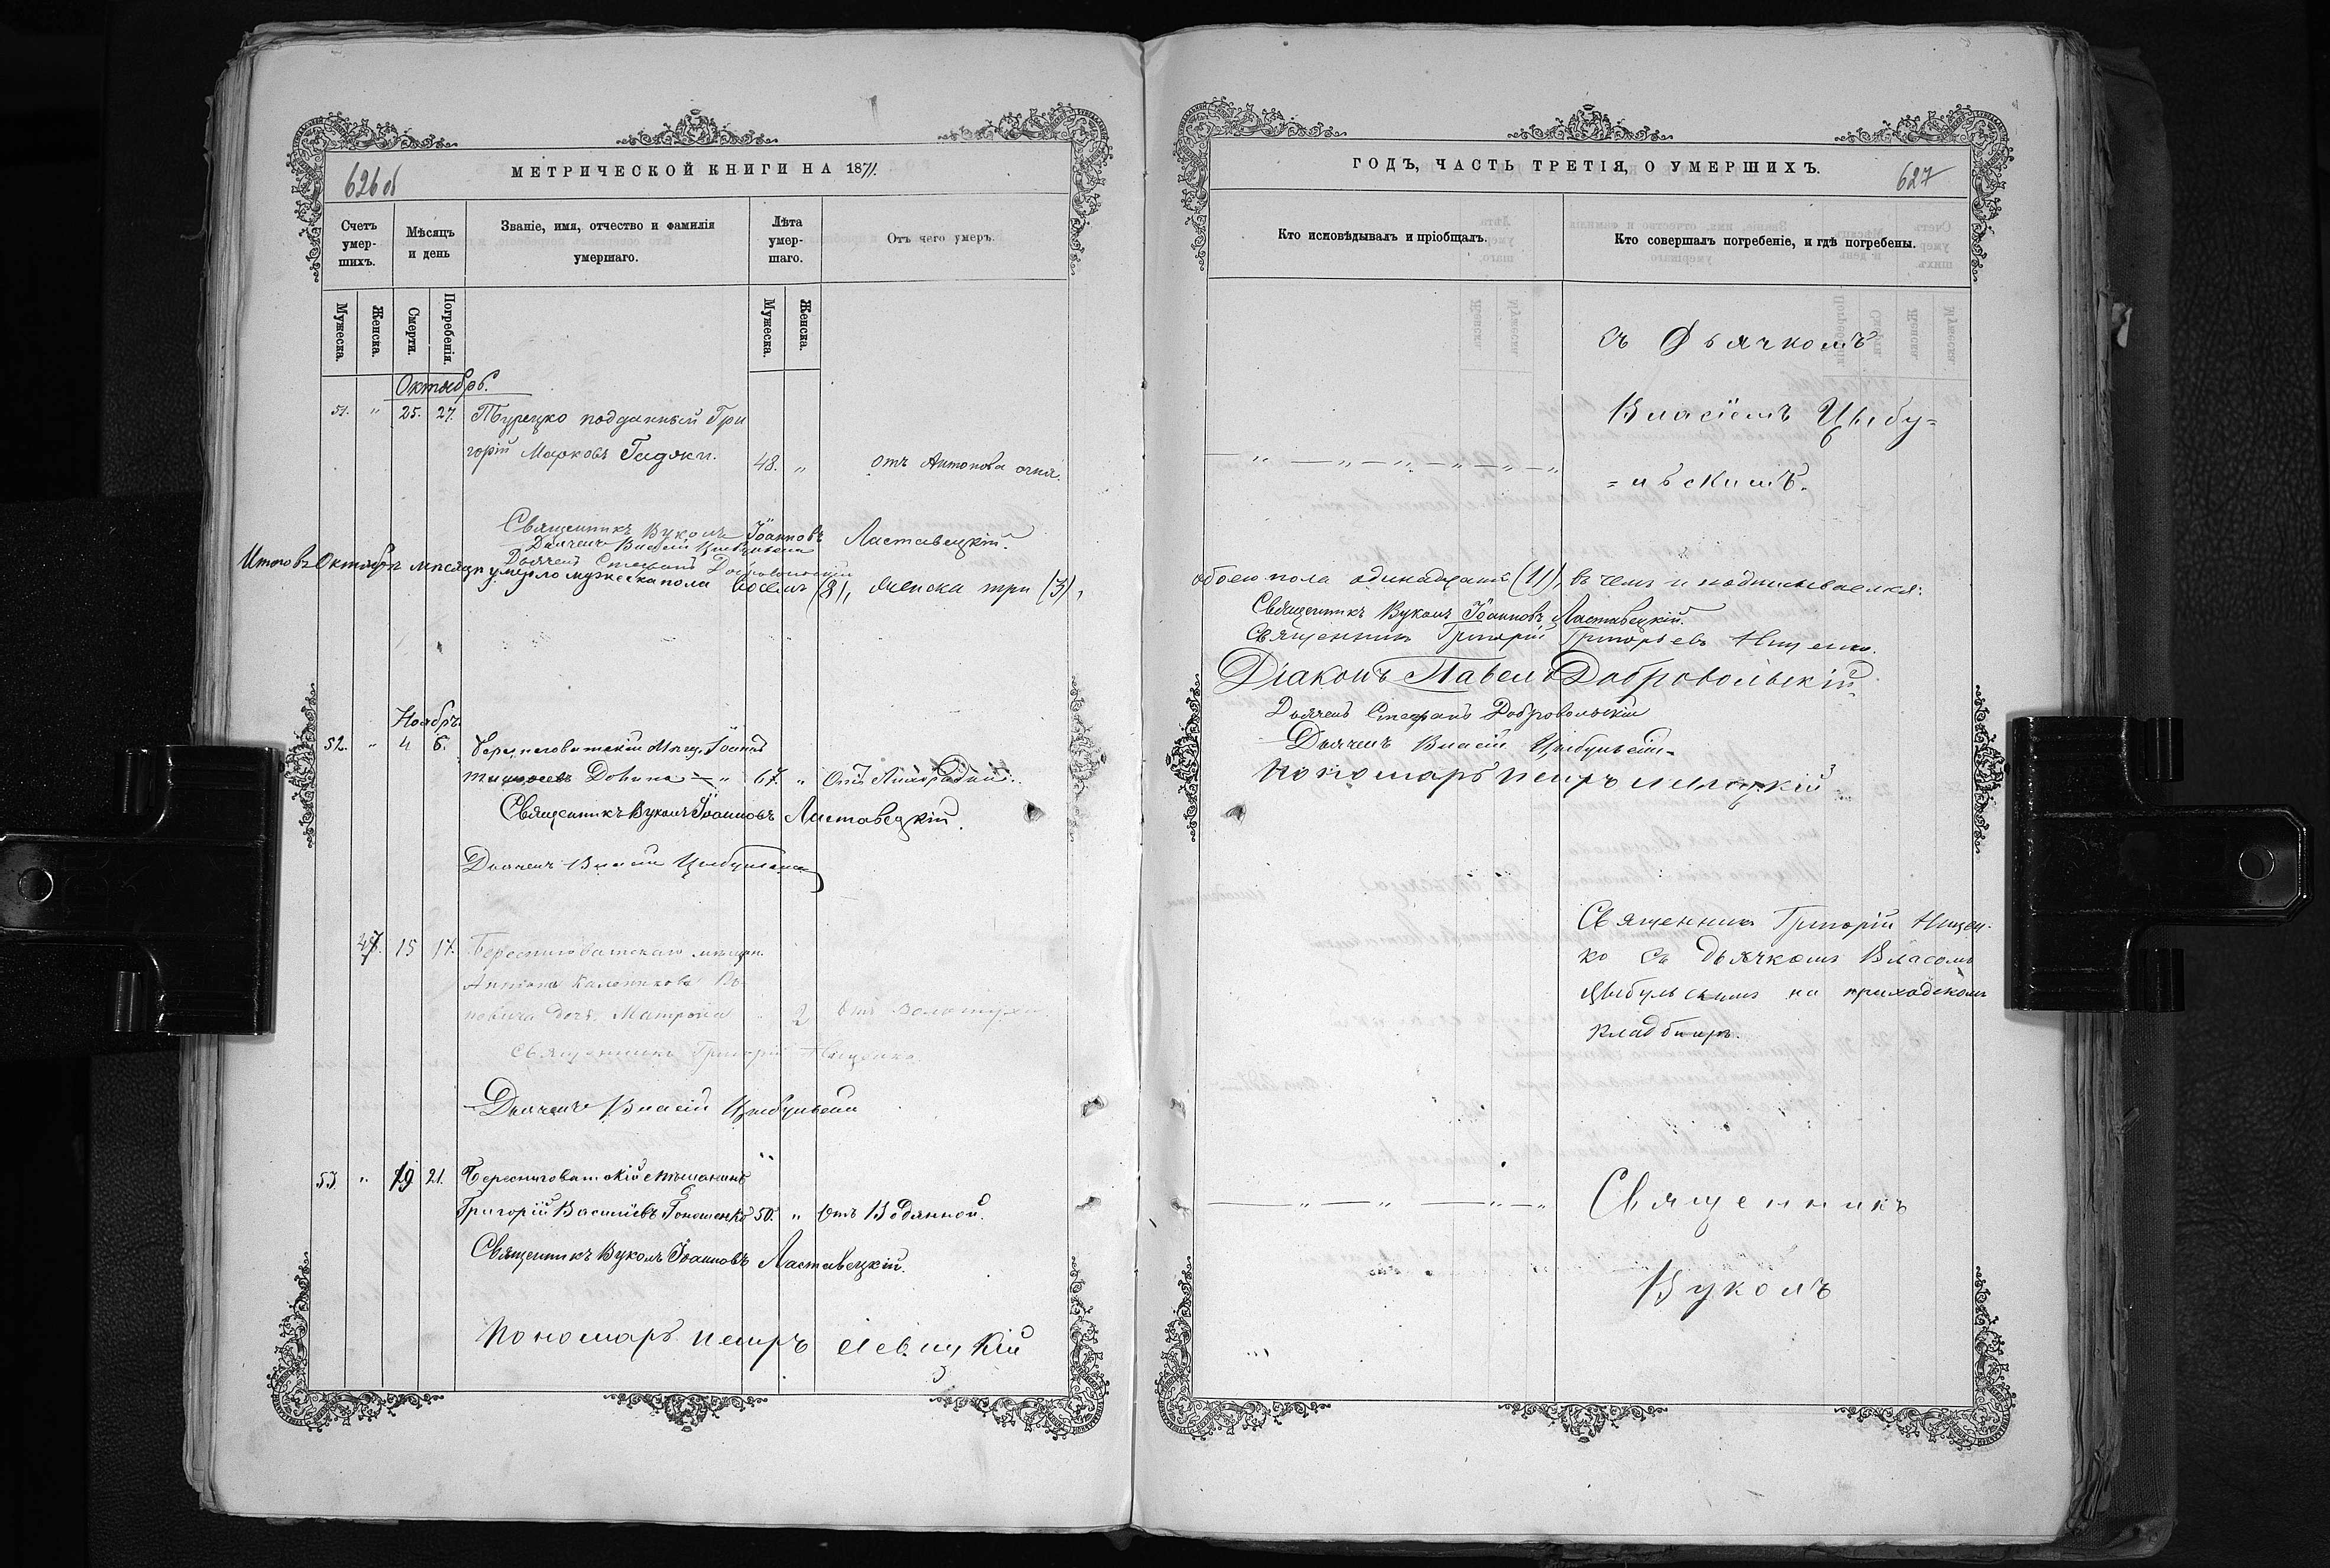 626 об
МЕТРИЧЕСКОЙ КНИГИ НА 1871.
Счетъ умер-шихъ.
Мѣсяцъ и день
Званіе, имя, отчество и фамилія умершаго.
Лѣта умер-шаго.
Отъ чего умеръ.
Мужеска.
Женска.
Смерти.
Погребенія.
Мужеска.
Женска.
Октябрь.
51. " 25. 27. Турецко подданный Гри
горій Марковъ 48. " отъ Антонова огня.
Священникъ Вуколъ Іоанновъ Ластавецкій.
Дьячекъ Власій Цыбульскій
Дьячекъ Стефанъ Добровольскій
Итого въ Октябрѣ мѣсяцѣ умерло мужеска пола восемь (8), женска три (3),
Ноябрь
52. " 4 6. Іоаннъ
Довина " 67. " Отъ Лихорадки.
Священникъ Вуколъ Іоанновъ Ластавецкій.
Дьячекъ Власій Цыбульскій
47. 15 17. Береснеговатскаго мѣщан.
Антона По-
повича дочь Матрона 2 Отъ Золотухи.
Священникъ Григорій Нищенко.
Дьячекъ Власій Цыбульскій
53. " 19 21. Береснеговатскій мѣщанинъ
Григорій Василіевъ Гономенко 50. " Отъ Водянной.
Священникъ Вуколъ Іоанновъ Ластавецкій.
Пономарь Петръ Левицкій
ГОДЪ, ЧАСТЬ ТРЕТІЯ, О УМЕРШИХЪ.
627
Кто исповѣдывалъ и пріобщалъ.
Кто совершалъ погребеніе, и гдѣ погребены.
съ Дьячкомъ
Власіемъ Цыбу=
=льскимъ.
обоего пола одинадцать (11), въ чемъ и подписываемся:
Священникъ Вуколъ Іоанновъ Ластавецкій.
Священникъ Григорій Григорьевъ Нищенко.
Діаконъ Павелъ Добровольскій
Дьячекъ Стефанъ Добровольскій
Дьячекъ Власій Цыбульскій
Пономарь Петръ Левицкій
Священникъ Григорій Нищен-
ко съ дьячкомъ Власомъ
Цыбульскимъ на приходскомъ
кладбищѣ.
Священникъ
Вуколъ